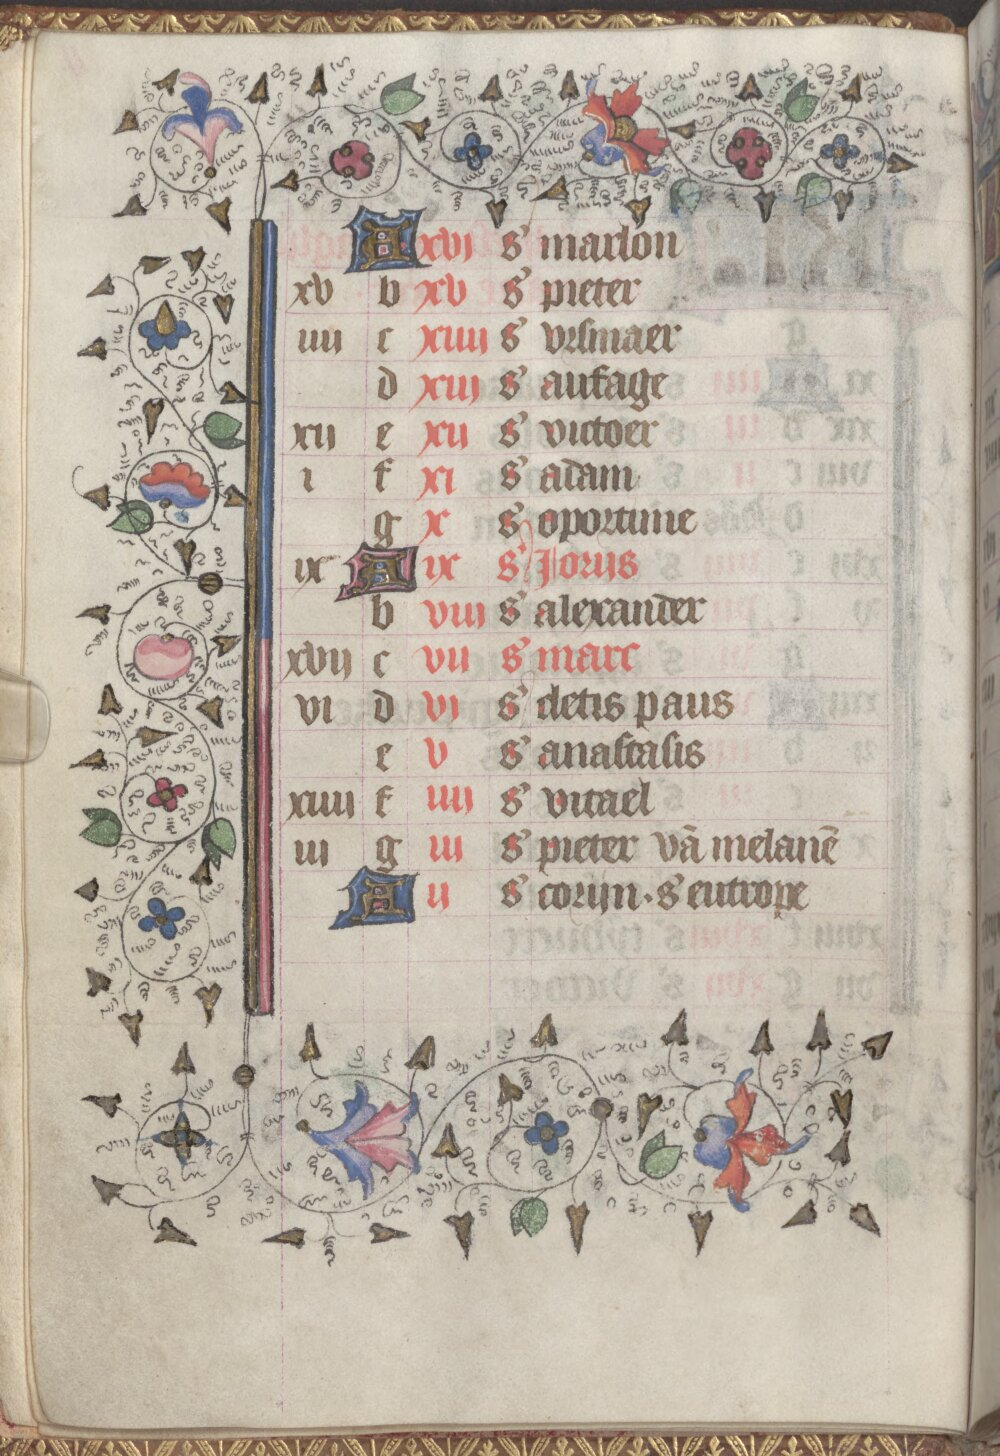 A xvi s' marlon
xv b xv s' pieter
iiii c xiiii s' vrsmaer
d xiii s' aufage
xii e xii s' victoer
i f xi s' adam
g x s' oportune
ix A ix s' Jorijs
b viii s' alexander
xvii c vii s' marc
vi d vi s' cletis paus
e v s' anastasis
xiiii f iiii s' vitael
iii g iii s' pieter vā melanē
A ii s' corijn · s' eutrope